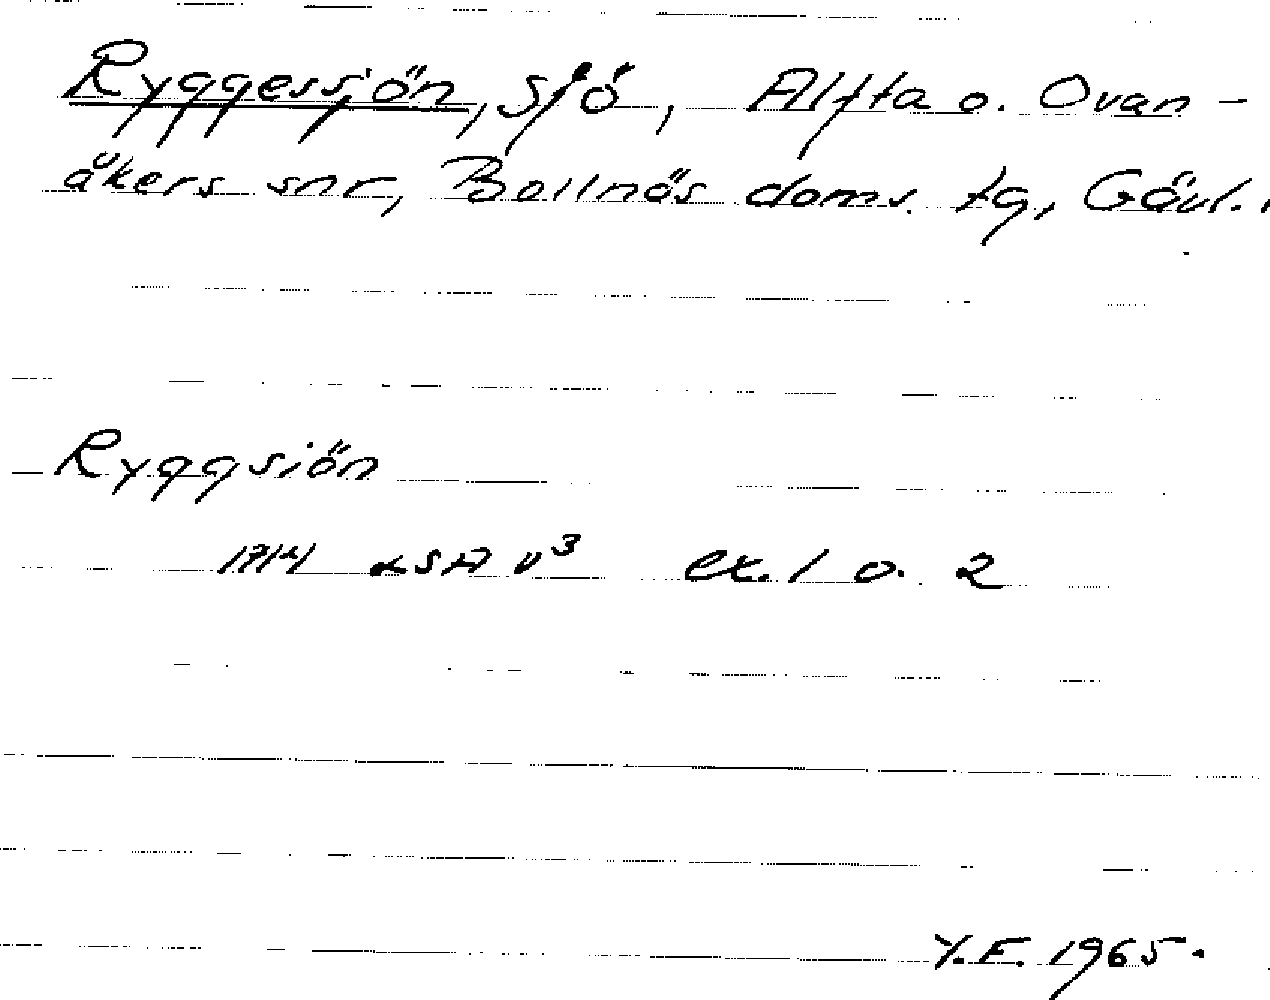 Ryggessjön, sjö, Alfta o. Ovan-
åkers snr, Bollnäs doms. tg, Gävl. l
Ryggsiön
1714 LSA v³ ex. 1 o. 2
Y.E. 1965.